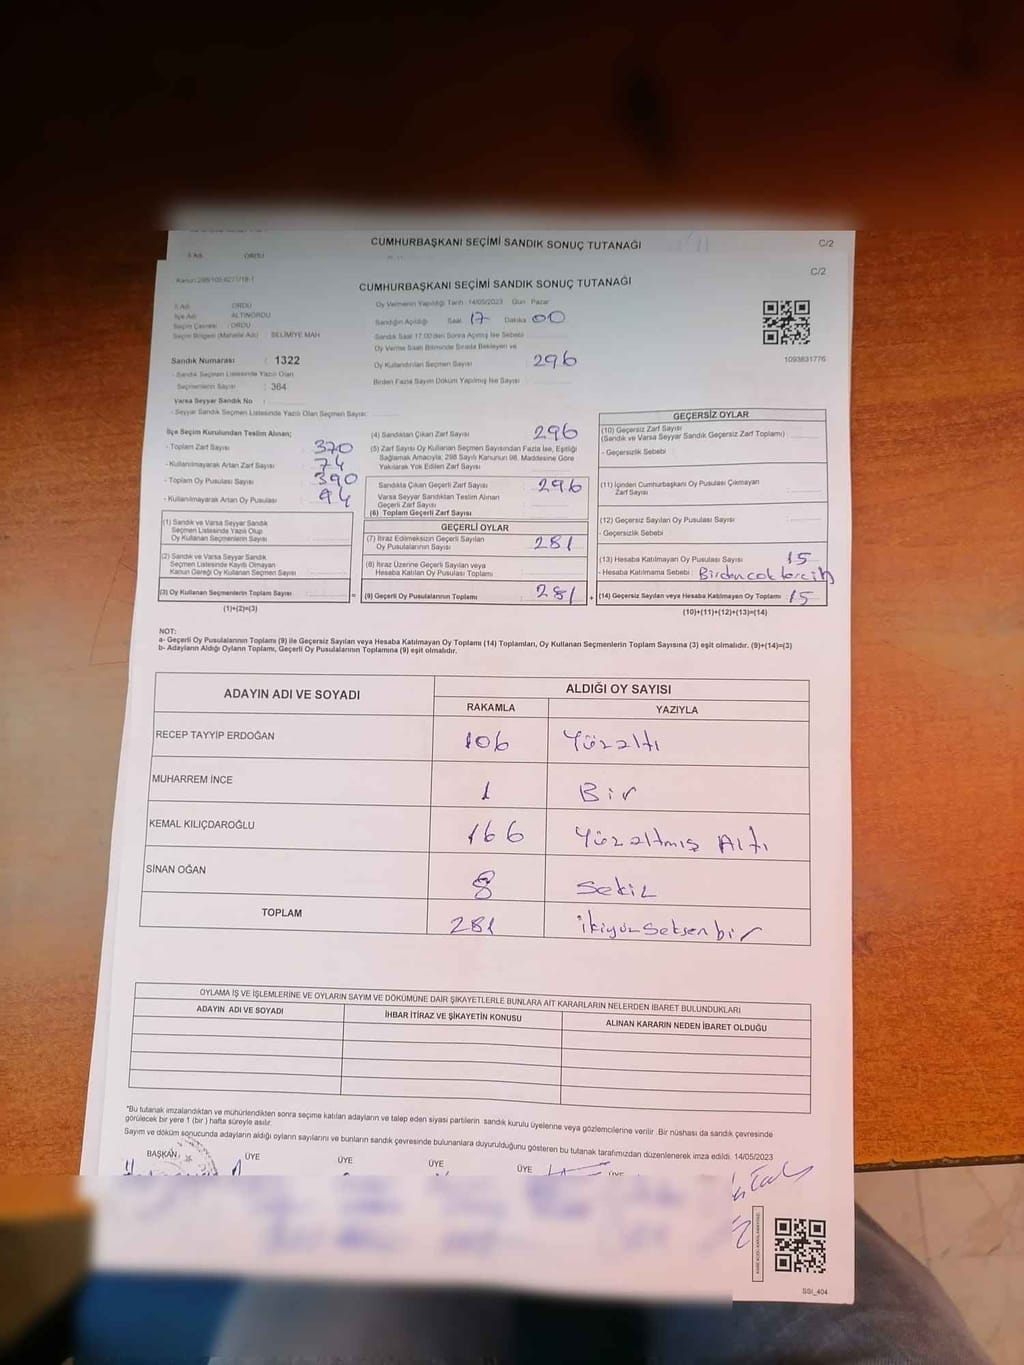 CUMHURBAŞKANI SEÇİMİ SANDIK SONUÇ TUTANAĞI
C/2
İl Adı ORDU
C/2
CUMHURBAŞKANI SEÇİMİ SANDIK SONUÇ TUTANAĞI
İl Adı : ORDU
İlçe Adı : ALTINORDU
Seçim Çevresi : ORDU
Seçim Bölgesi (Mahalle Adı) : SELİMİYE MAH
Oy Vermenin Yapıldığı Tarih : 14/05/2023 Gün : Pazar
Sandığın Açıldığı Saat 17 Dakika 00
Sandık Saat 17:00'den Sonra Açılmış İse Sebebi
Oy Verme Saati Bitiminde Sırada Bekleyen ve
Oy Kullandırılan Seçmen Sayısı 296
Birden Fazla Sayım Döküm Yapılmış İse Sayısı
1093831776
Sandık Numarası : 1322
- Sandık Seçmen Listesinde Yazılı Olan
Seçmenlerin Sayısı : 364
Varsa Seyyar Sandık No :
- Seyyar Sandık Seçmen Listesinde Yazılı Olan Seçmen Sayısı:
İlçe Seçim Kurulundan Teslim Alınan;
- Toplam Zarf Sayısı : 370
- Kullanılmayarak Artan Zarf Sayısı : 74
- Toplam Oy Pusulası Sayısı : 390
- Kullanılmayarak Artan Oy Pusulası : 94
(1) Sandık ve Varsa Seyyar Sandık
Seçmen Listesinde Yazılı Olup
Oy Kullanan Seçmenlerin Sayısı
(2) Sandık ve Varsa Seyyar Sandık
Seçmen Listesinde Kayıtlı Olmayan
Kanun Gereği Oy Kullanan Seçmen Sayısı
(3) Oy Kullanan Seçmenlerin Toplam Sayısı =
(1)+(2)=(3)
(4) Sandıktan Çıkan Zarf Sayısı 296
(5) Zarf Sayısı Oy Kullanan Seçmen Sayısından Fazla İse, Eşitliği
Sağlamak Amacıyla, 298 Sayılı Kanunun 98. Maddesine Göre
Yakılarak Yok Edilen Zarf Sayısı
Sandıkta Çıkan Geçerli Zarf Sayısı 296
Varsa Seyyar Sandıktan Teslim Alınan
Geçerli Zarf Sayısı
(6) Toplam Geçerli Zarf Sayısı
GEÇERLİ OYLAR
(7) İtiraz Edilmeksizin Geçerli Sayılan
Oy Pusulalarının Sayısı 281
(8) İtiraz Üzerine Geçerli Sayılan veya
Hesaba Katılan Oy Pusulası Toplamı
(9) Geçerli Oy Pusulalarının Toplamı 281 +
GEÇERSİZ OYLAR
(10) Geçersiz Zarf Sayısı
(Sandık ve Varsa Seyyar Sandık Geçersiz Zarf Toplamı)
- Geçersizlik Sebebi
(11) İçinden Cumhurbaşkanı Oy Pusulası Çıkmayan
Zarf Sayısı
(12) Geçersiz Sayılan Oy Pusulası Sayısı
- Geçersizlik Sebebi
(13) Hesaba Katılmayan Oy Pusulası Sayısı 15
- Hesaba Katılmama Sebebi : Birden çok tercih
(14) Geçersiz Sayılan veya Hesaba Katılmayan Oy Toplamı 15
(10)+(11)+(12)+(13)=(14)
NOT:
a- Geçerli Oy Pusulalarının Toplamı (9) ile Geçersiz Sayılan veya Hesaba Katılmayan Oy Toplamı (14) Toplamları, Oy Kullanan Seçmenlerin Toplam Sayısına (3) eşit olmalıdır. (9)+(14)=(3)
b- Adayların Aldığı Oyların Toplamı, Geçerli Oy Pusulalarının Toplamına (9) eşit olmalıdır.
ADAYIN ADI VE SOYADI
ALDIĞI OY SAYISI
RAKAMLA YAZIYLA
RECEP TAYYİP ERDOĞAN 106 Yüzaltı
MUHARREM İNCE 1 Bir
KEMAL KILIÇDAROĞLU 166 Yüzaltmış Altı
SİNAN OĞAN 8 Sekiz
TOPLAM 281 ikiyüzseksenbir
OYLAMA İŞ VE İŞLEMLERİNE VE OYLARIN SAYIM VE DÖKÜMÜNE DAİR ŞİKAYETLERLE BUNLARA AİT KARARLARIN NELERDEN İBARET BULUNDUKLARI
ADAYIN ADI VE SOYADI İHBAR İTİRAZ VE ŞİKAYETİN KONUSU ALINAN KARARIN NEDEN İBARET OLDUĞU
*Bu tutanak imzalandıktan ve mühürlendikten sonra seçime katılan adayların ve talep eden siyasi partilerin sandık kurulu üyelerine veya gözlemcilerine verilir. Bir nüshası da sandık çevresinde
görülecek bir yere 1 (bir) hafta süreyle asılır.
Sayım ve döküm sonucunda adayların aldığı oyların sayılarını ve bunların sandık çevresinde bulunanlara duyurulduğunu gösteren bu tutanak tarafımızdan düzenlenerek imza edildi. 14/05/2023
BAŞKAN ÜYE ÜYE ÜYE ÜYE ÜYE
SSI_404